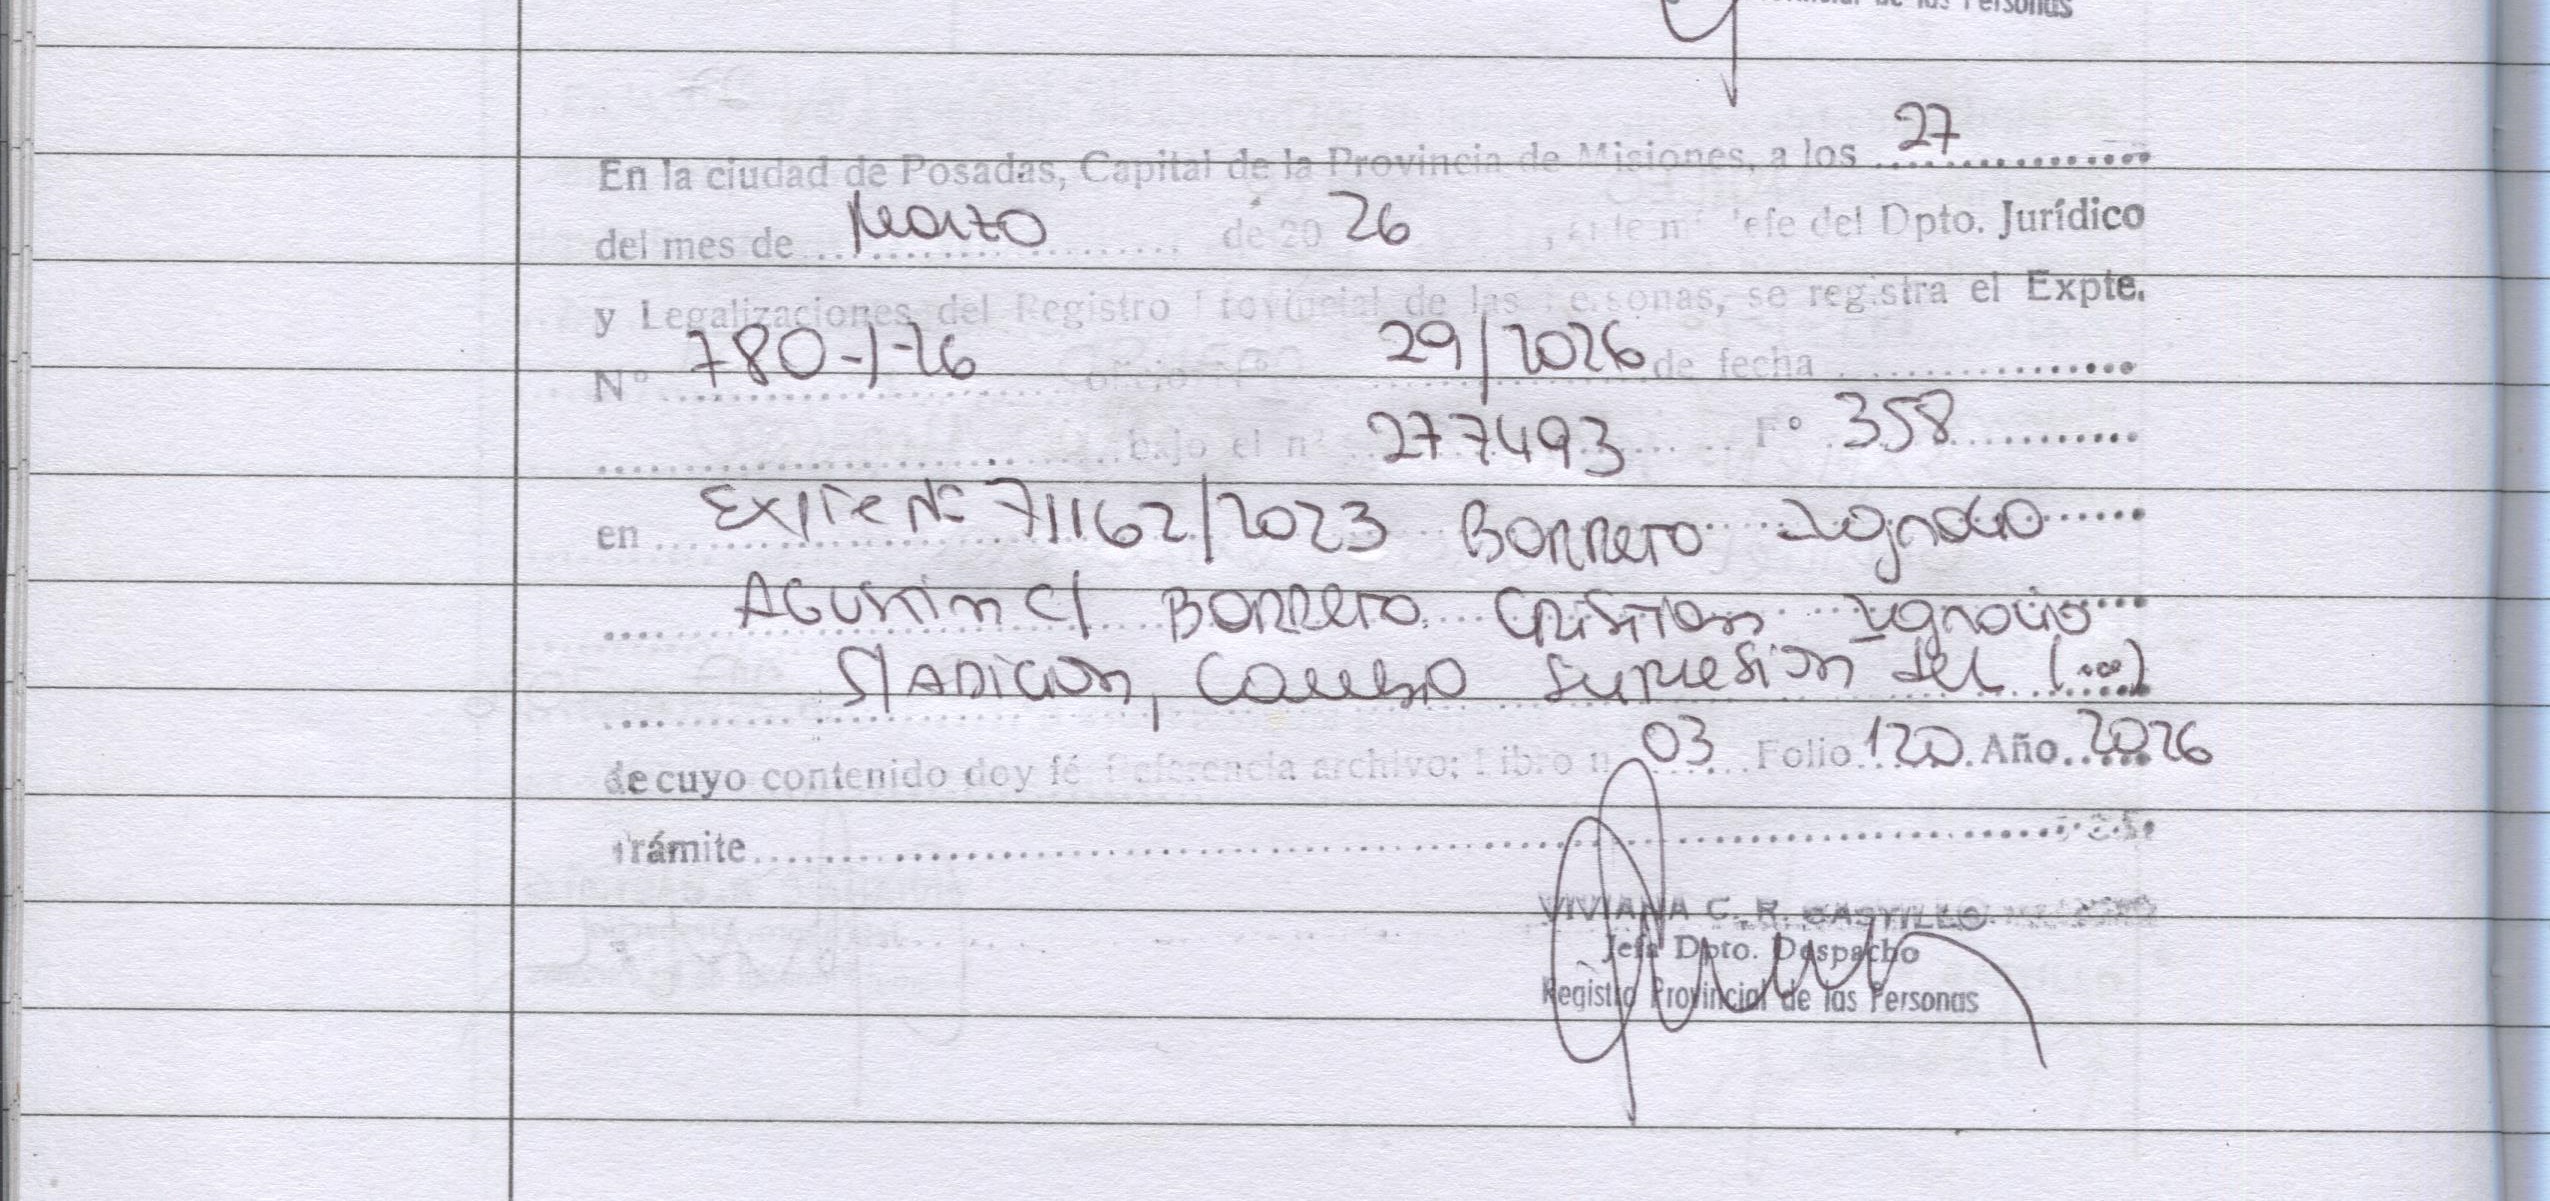 Provincial de las Personas
En la ciudad de Posadas, Capital de la Provincia de Misiones, a los 27
del mes de Marzo de 20 26, ante mí Jefe del Dpto. Jurídico
y Legalizaciones del Registro Provincial de las Personas, se registra el Expte.
Nº 780-I-26 oficio nº 29/2026 de fecha
bajo el nº 277493 Fº 358
en Expte Nº 71162/2023 Borrero Ignacio
Agustin c/ Borrero Cristian Ignacio
S/ Adicion, Cambio Supresion del (...)
de cuyo contenido doy fé Referencia archivo: Libro n 03 Folio 120 Año 2026
Trámite
VIVIANA C. R. CASTILLO
Jefa Dpto. Despacho
Registro Provincial de las Personas